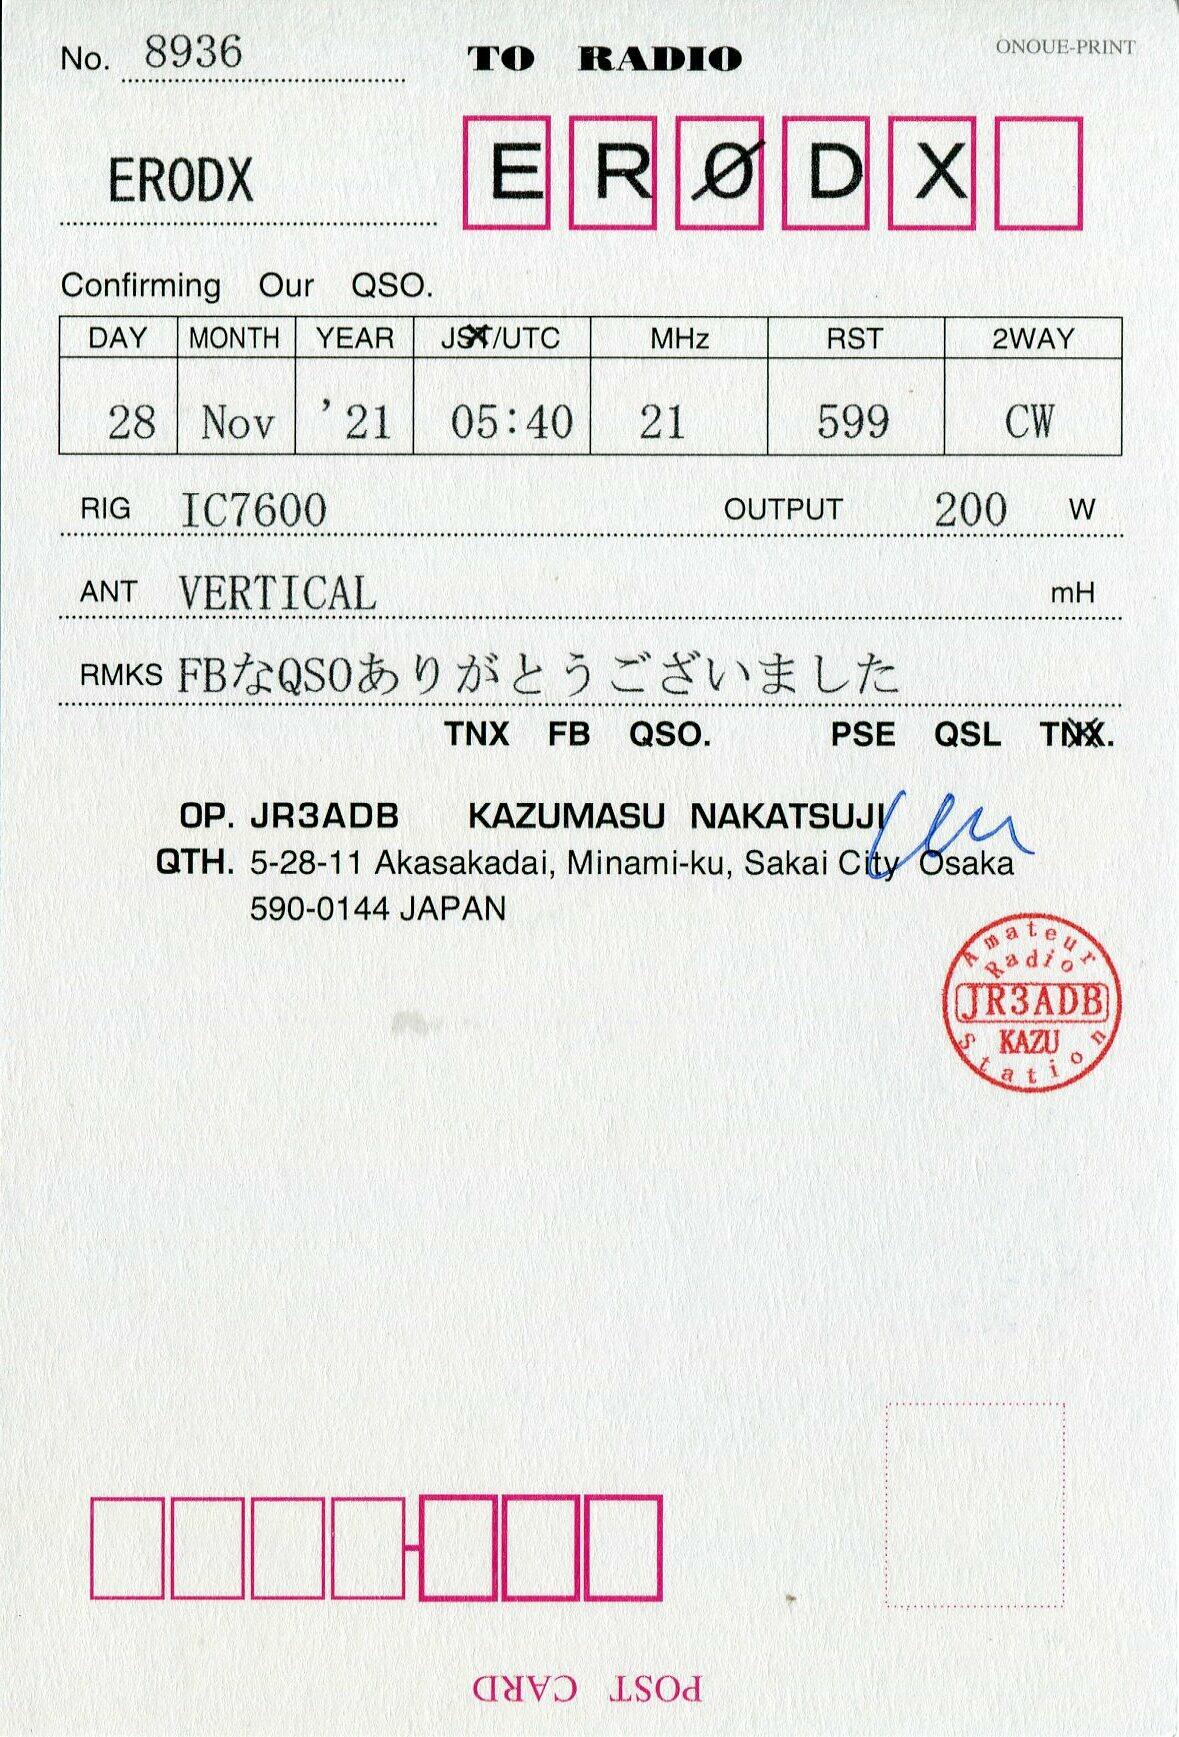 No. 8936 TO RADIO ONOUE-PRINT
ERODX E R Ø D X
Confirming Our QSO.
DAY MONTH YEAR JST/UTC MHz RST 2WAY
28 Nov '21 05:40 21 599 CW
RIG IC7600 OUTPUT 200 W
ANT VERTICAL mH
RMKS FBなQSOありがとうございました
TNX FB QSO. PSE QSL TNX.
OP. JR3ADB KAZUMASU NAKATSUJI
QTH. 5-28-11 Akasakadai, Minami-ku, Sakai City Osaka
590-0144 JAPAN
Amateur
Radio
JR3ADB
KAZU
Station
POST CARD